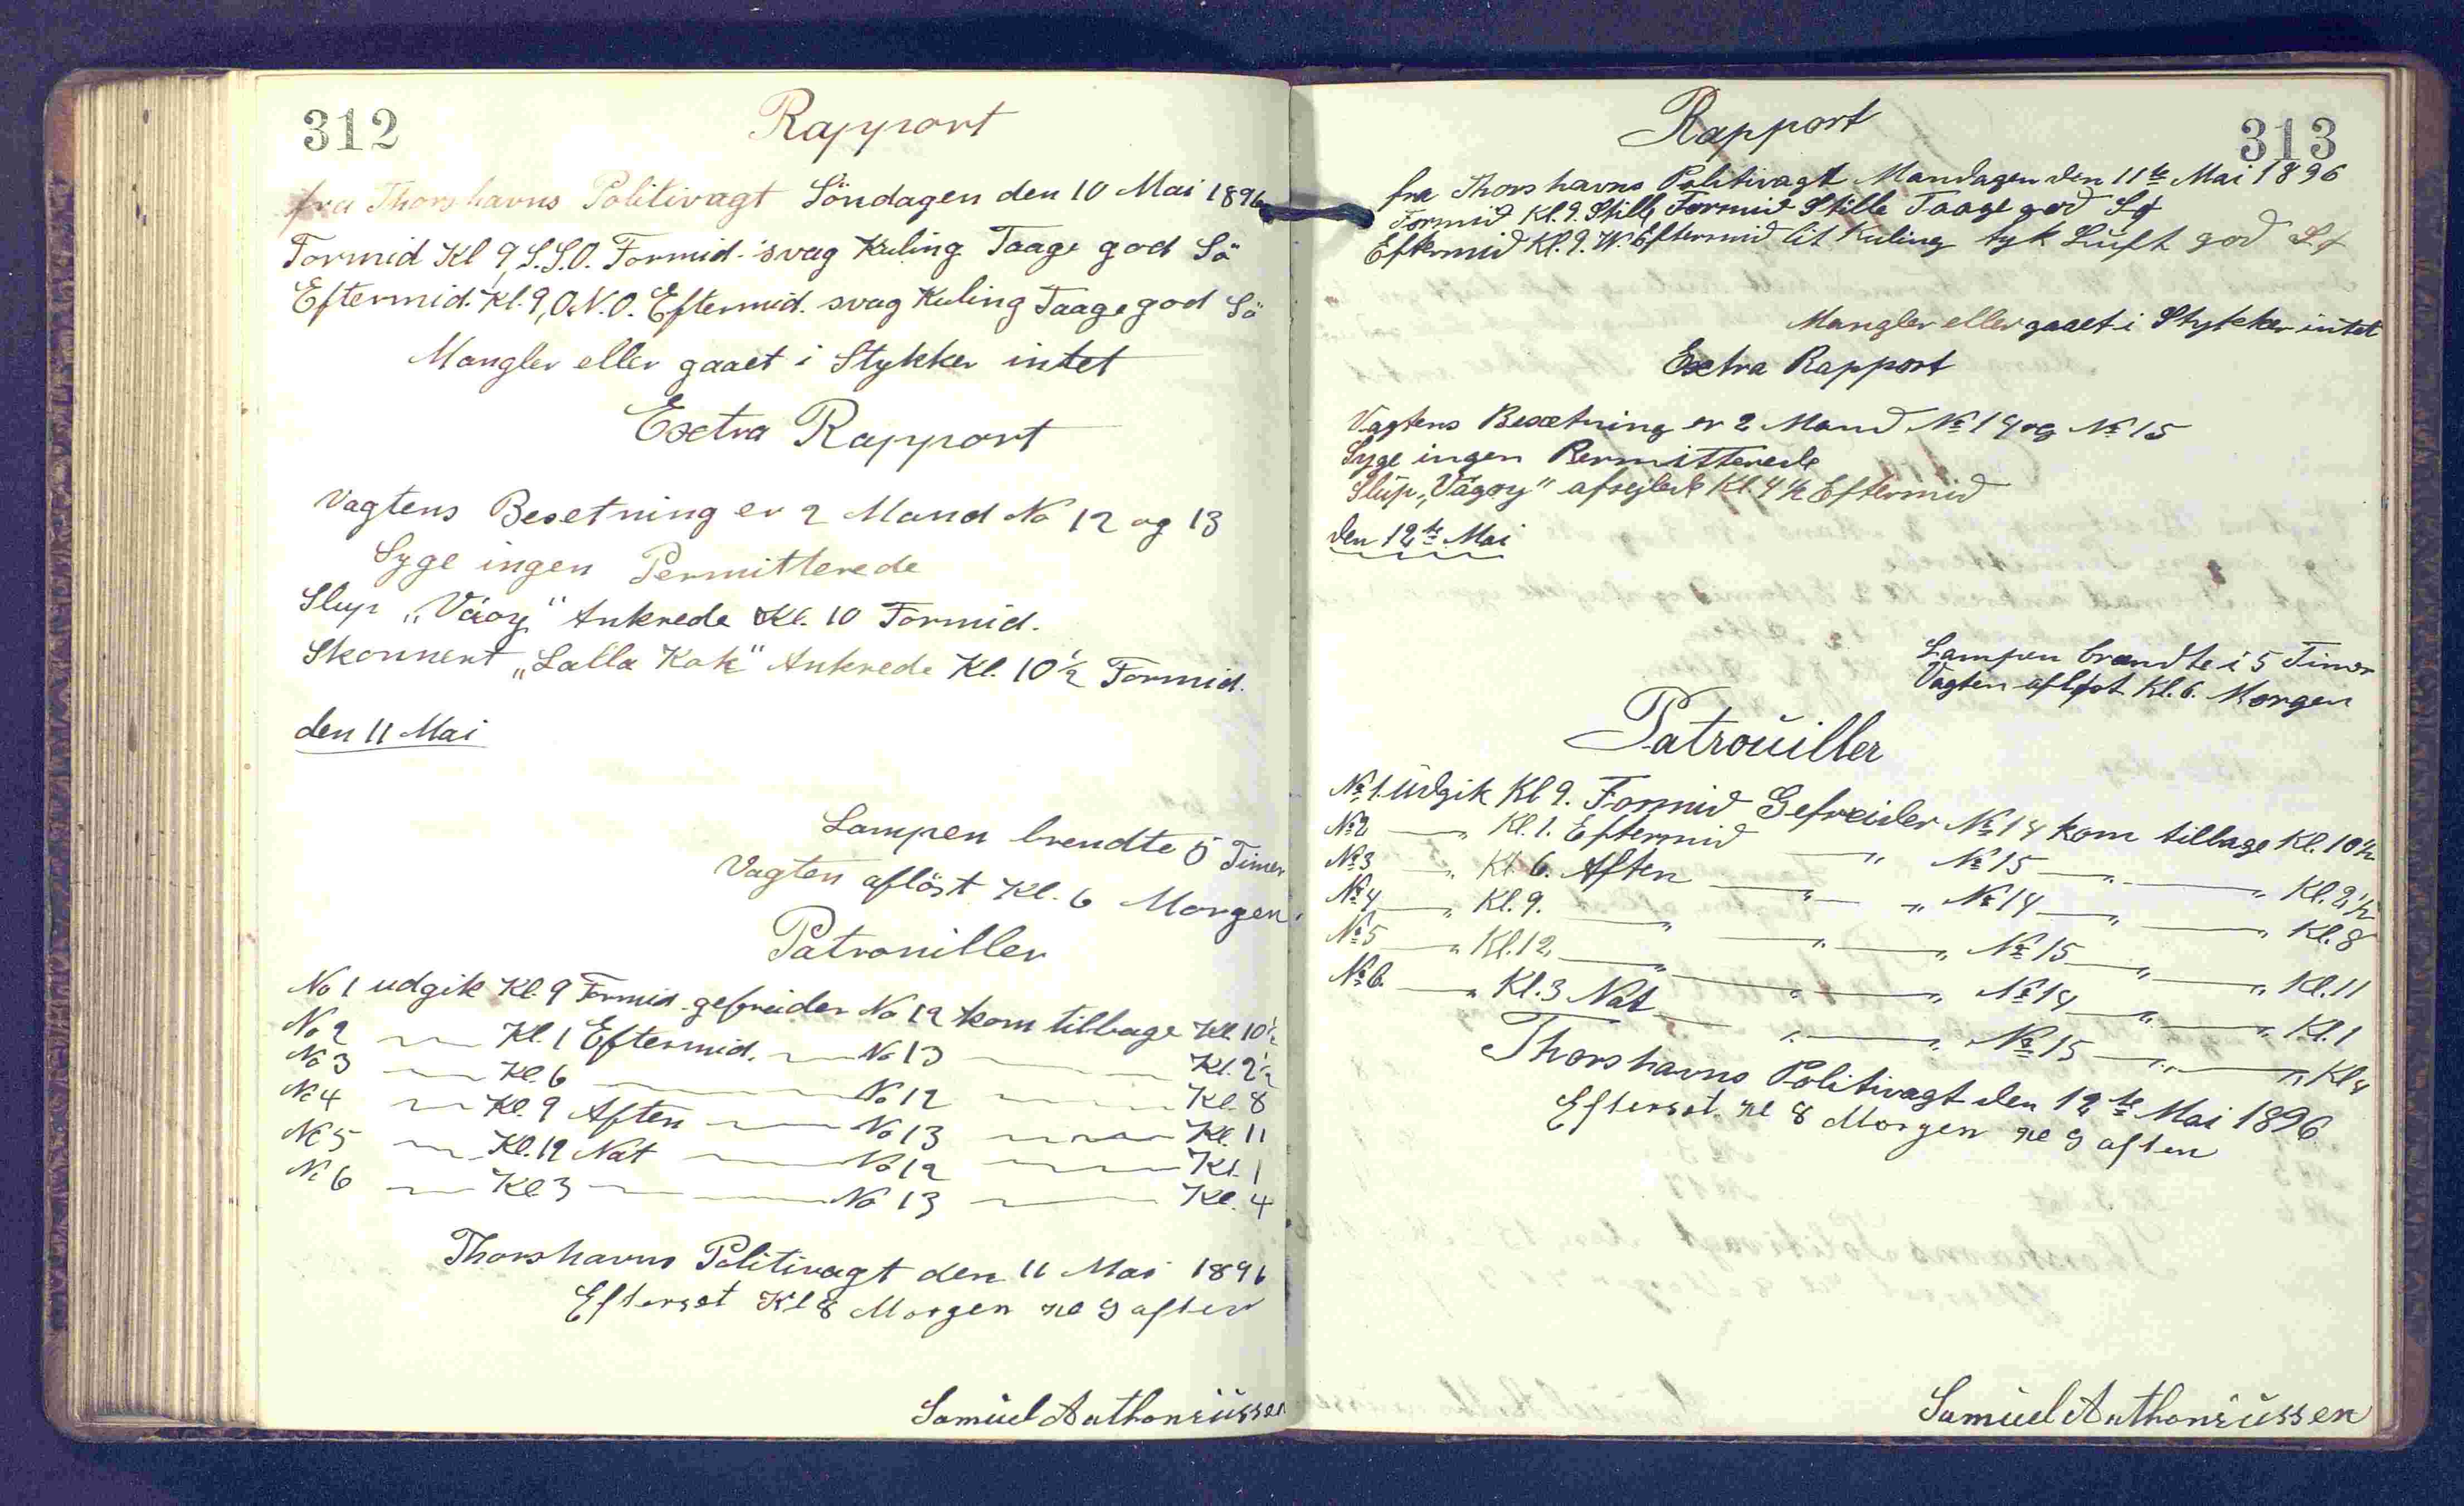 312
Rapport
fra Thorshavns Politivagt Söndagen den 10 Mai 1896
Formid Kl 9, S.S.O. Formid. svag Kuling Taage god Sö
Eftermid. Kl. 9, O.N.O. Eftermid. svag Kuling Taage god Sö
Mangler eller gaaet i Stykker intet
Exctra Rapport
Vagtens Besetning er 2 Mand No 12 og 13
Syge ingen Permitterede
Slup „Váoy“ Ankrede Kl. 10 Formid.
Skonnert „Lalla Kok“ Ankrede Kl. 10 1/2 Formid.
den 11 Mai
Lampen brendte 5 Timer
Vagten aflöst Kl. 6 Morgen.
Patrouiller
No 1 udgik Kl. 9 Formid. gefreider No 12 kom tilbage Kl. 10 1/2
No 2 — Kl. 1 Eftermid. — No 13 — Kl. 2 1/2
No 3 — Kl. 6 — No 12 — Kl. 8
No 4 — Kl. 9 Aften — No 13 — Kl. 11
No 5 — Kl. 12 Nat — No 12 — Kl. 1
No 6 — Kl. 3 — No 13 — Kl. 4
Thorshavns Politivagt den 11 Mai 1896
Efterset Kl 8 Morgen Kl 9 aften
Samúel Anthoniússen
313
Rapport
fra Thorshavns Politivagt Mandagen den 11te Mai 1896
Formid Kl. 9. Stille Formid Stille Taage god Sø
Eftermid Kl. 9. W. Eftermid lit Kuling tyk Luft god Sø
Mangler eller gaaet i Stykker intet
Exctra Rapport
Vagtens Besætning er 2 Mand No 14 og No 15
Syge ingen Permitterede
Slup „Vágoy“ afsejlede Kl. 4 1/2 Eftermid
den 12te Mai
Lampen brændte i 5 Timer
Vagten afløst Kl. 6. Morgen
Patrouiller
No 1. udgik Kl 9. Formid Gefreider No 14 kom tilbage Kl. 10 1/2
No 2 — „ Kl. 1. Eftermid — „ No 15 — „ — „ Kl. 2 1/2
No 3 — „ Kl. 6. Aften — „ — „ No 14 — „ — „ Kl. 8
No 4 — „ Kl. 9. — „ — „ — „ No 15 — „ — „ Kl. 11
No 5 — „ Kl. 12 — „ — „ — „ No 14 — „ — „ Kl. 1
No 6. — „ Kl. 3 Nat — „ — „ No 15 — „ — „ Kl 4
Thorshavns Politivagt den 12te Mai 1896
Efterset Kl 8 Morgen Kl 9 aften
Samúel Anthoniússen